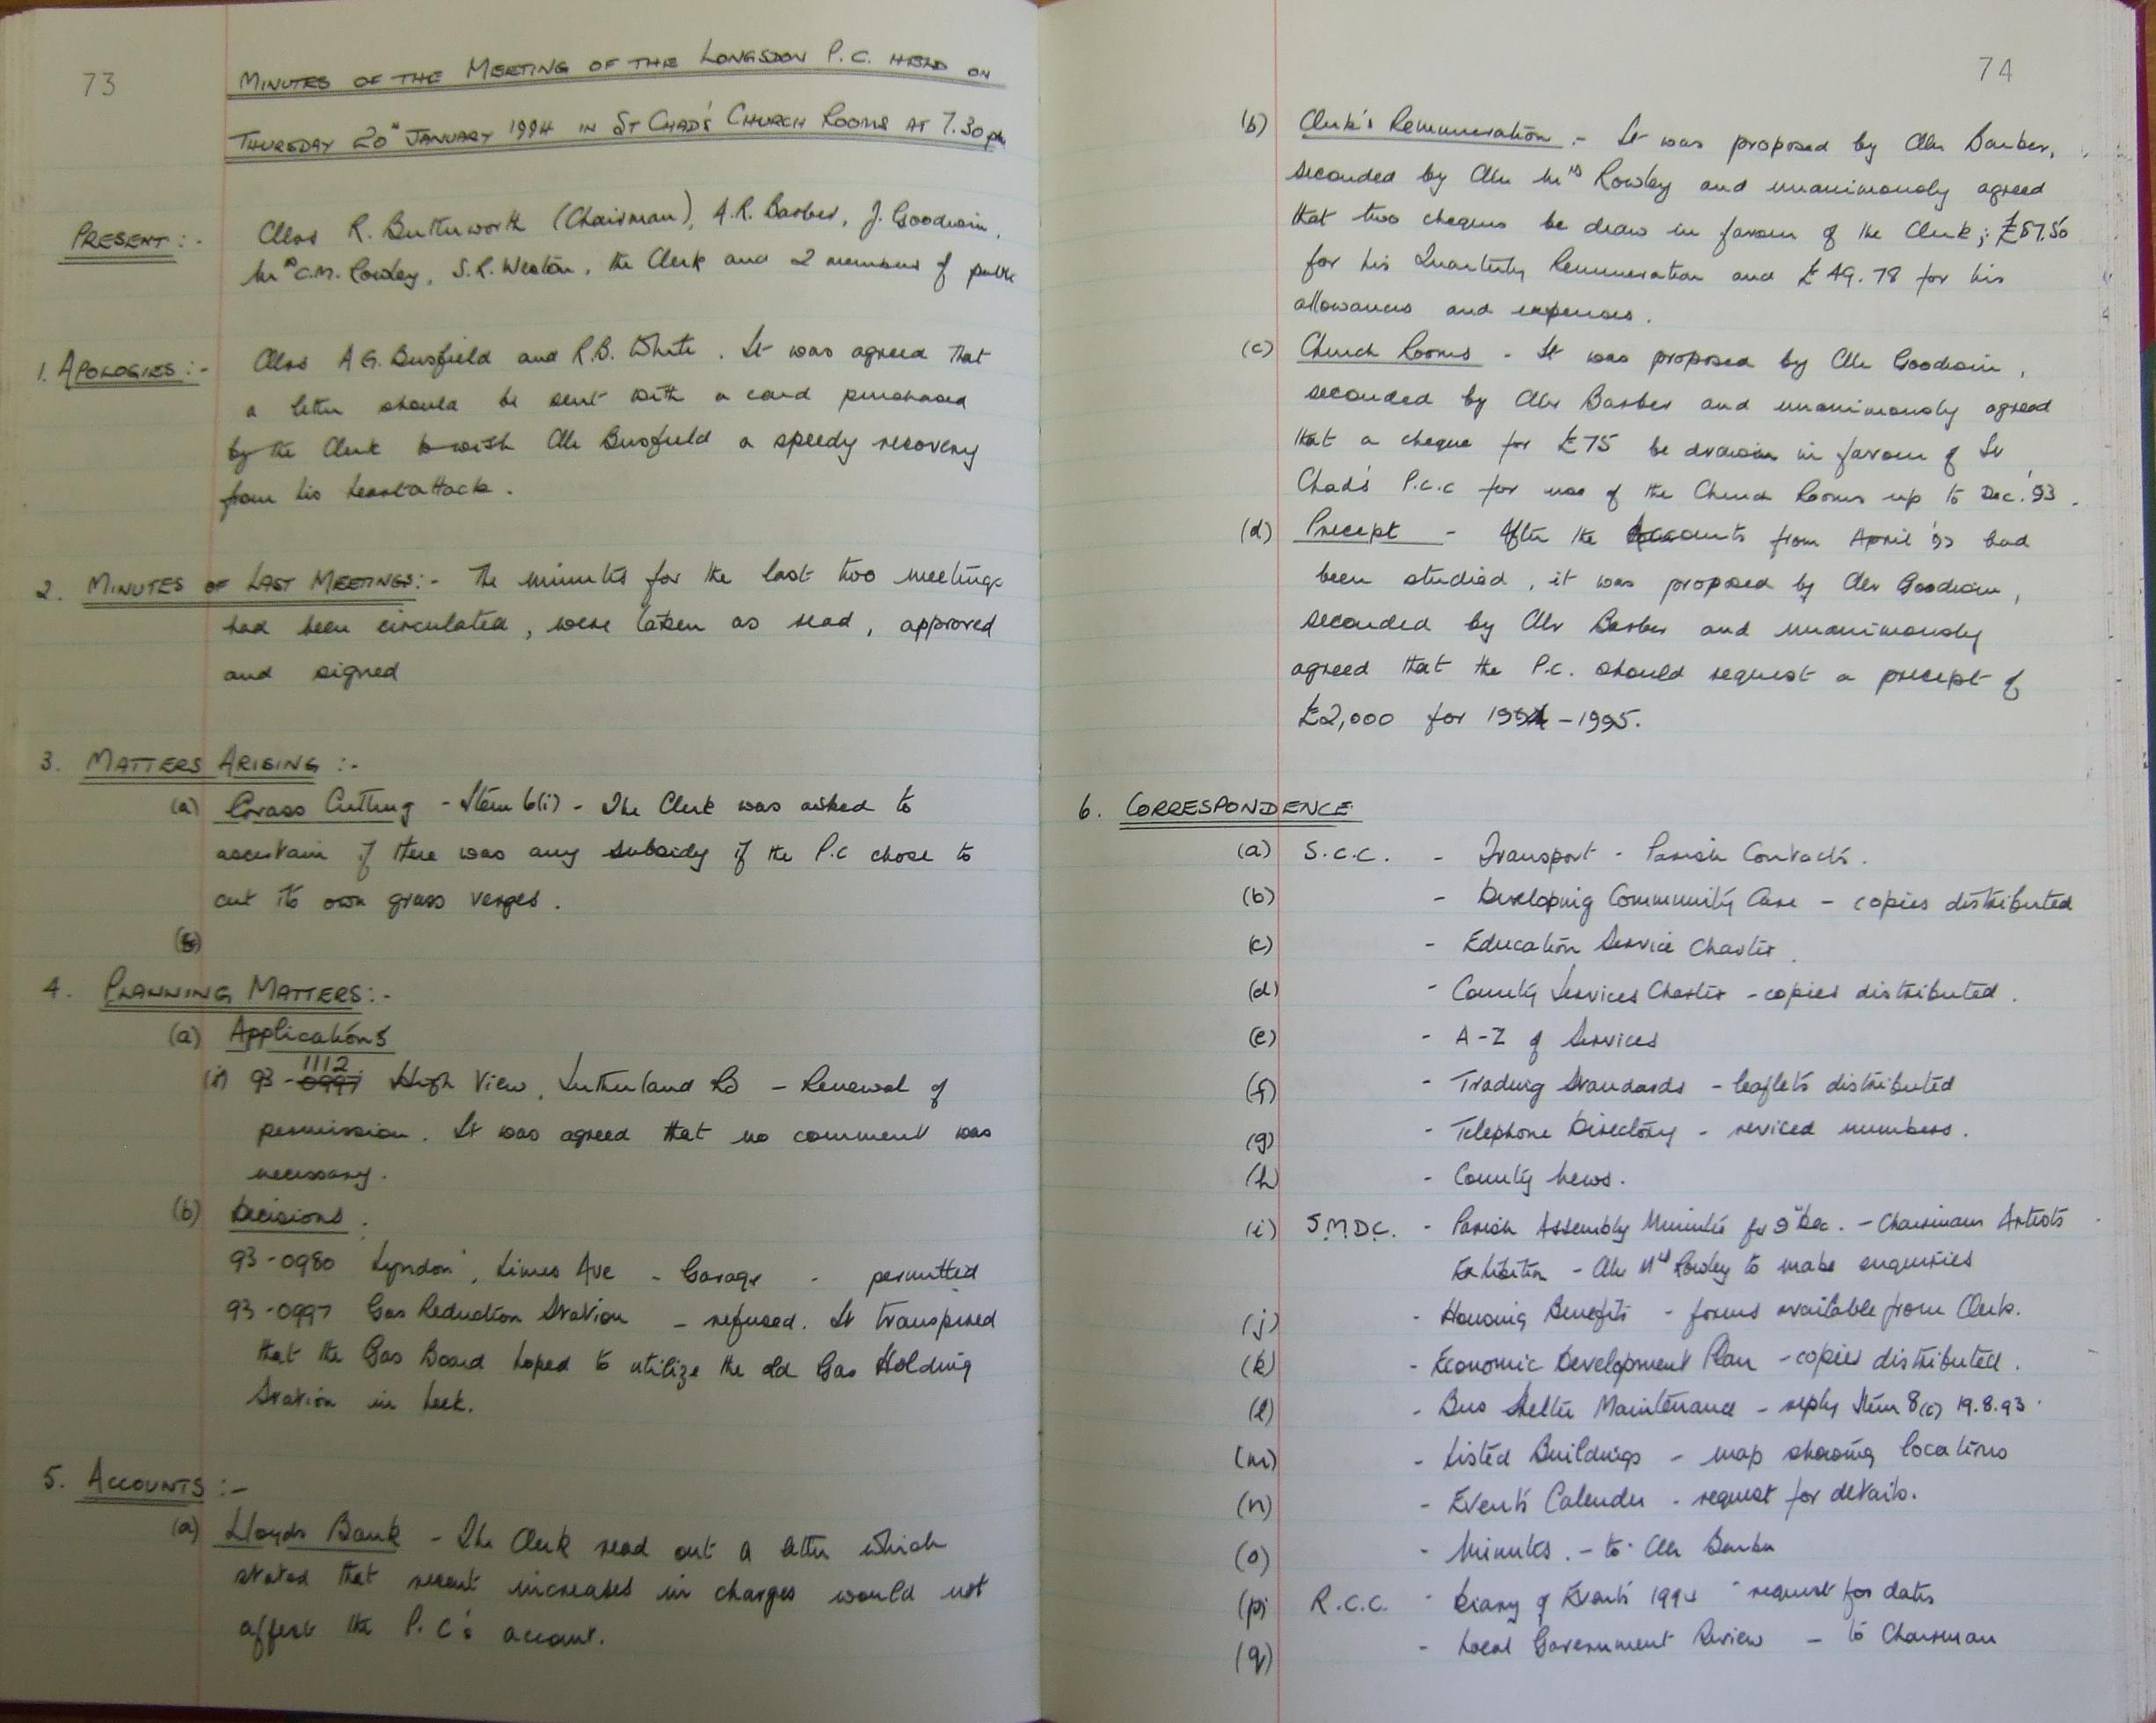 73
MINUTES OF THE MEETING OF THE LONGSDON P.C. HELD ON
THURSDAY 20th JANUARY 1994 IN ST CHAD'S CHURCH ROOMS AT 7.30pm
PRESENT:- Cllrs R. Butterworth (Chairman), A.R. Barber, J. Goodwin,
Mrs C.M. Rowley, S.R. Weston, the Clerk and 2 members of public
1. APOLOGIES:- Cllrs A G. Busfield and R.B. White. It was agreed that
a letter should be sent with a card purchased
by the Clerk to wish Cllr Busfield a speedy recovery
from his heart attack.
2. MINUTES OF LAST MEETINGS:- The minutes for the last two meetings
had been circulated, were taken as read, approved
and signed
3. MATTERS ARISING:-
(a) Grass Cutting - Item 6(i) - The Clerk was asked to
ascertain if there was any subsidy if the P.C chose to
cut its own grass verges.
(b)
4. PLANNING MATTERS:-
(a) Applications
1112
(i) 93-0997 High View, Sutherland Rd - Renewal of
permission. It was agreed that no comment was
necessary.
(b) Decisions.
93-0980 Lyndon, Limes Ave - Garage - permitted
93-0997 Gas Reduction Station - refused. It transpired
that the Gas Board hoped to utilize the old Gas Holding
Station in Leek.
5. ACCOUNTS:-
(a) Lloyds Bank - The Clerk read out a letter which
stated that recent increases in charges would not
affect the P.C's account.
74
(b) Clerk's Remuneration - It was proposed by Cllr Barber,
seconded by Cllr Mrs Rowley and unanimously agreed
that two cheques be draw in favour of the Clerk; £87.50
for his Quarterly Remuneration and £49.78 for his
allowances and expenses.
(c) Church Rooms - It was proposed by Cllr Goodwin,
seconded by Cllr Barber and unanimously agreed
that a cheque for £75 be drawn in favour of St
Chad's P.C.C for use of the Church Rooms up to Dec. '93.
(d) Precept - After the Accounts from April '93 had
been studied, it was proposed by Cllr Goodwin,
seconded by Cllr Barber and unanimously
agreed that the P.C. should request a precept of
£2,000 for 1994-1995.
6. CORRESPONDENCE
(a) S.C.C. - Transport - Parish Contacts.
(b) - Developing Community Care - copies distributed
(c) - Education Service Charter.
(d) - County Services Charter - copies distributed.
(e) - A-Z of Services
(f) - Trading Standards - leaflets distributed
(g) - Telephone Directory - reviced numbers.
(h) - County News.
(i) S.M.D.C. - Parish Assembly Minutes for 9th Dec. - Chairmans Artists
Exhibition - Cllr Mrs Rowley to make enquiries
(j) - Housing Benefits - forms available from Clerk.
(k) - Economic Development Plan - copies distributed.
(l) - Bus Shelter Maintenance - reply Item 8(c) 19.8.93.
(m) - Listed Buildings - map showing locations
(n) - Events Calender - request for details.
(o) - Minutes. - to Cllr Barber
(p) R.C.C. - Diary of Events 1994 - request for dates
(q) - Local Government Review - to Chairman